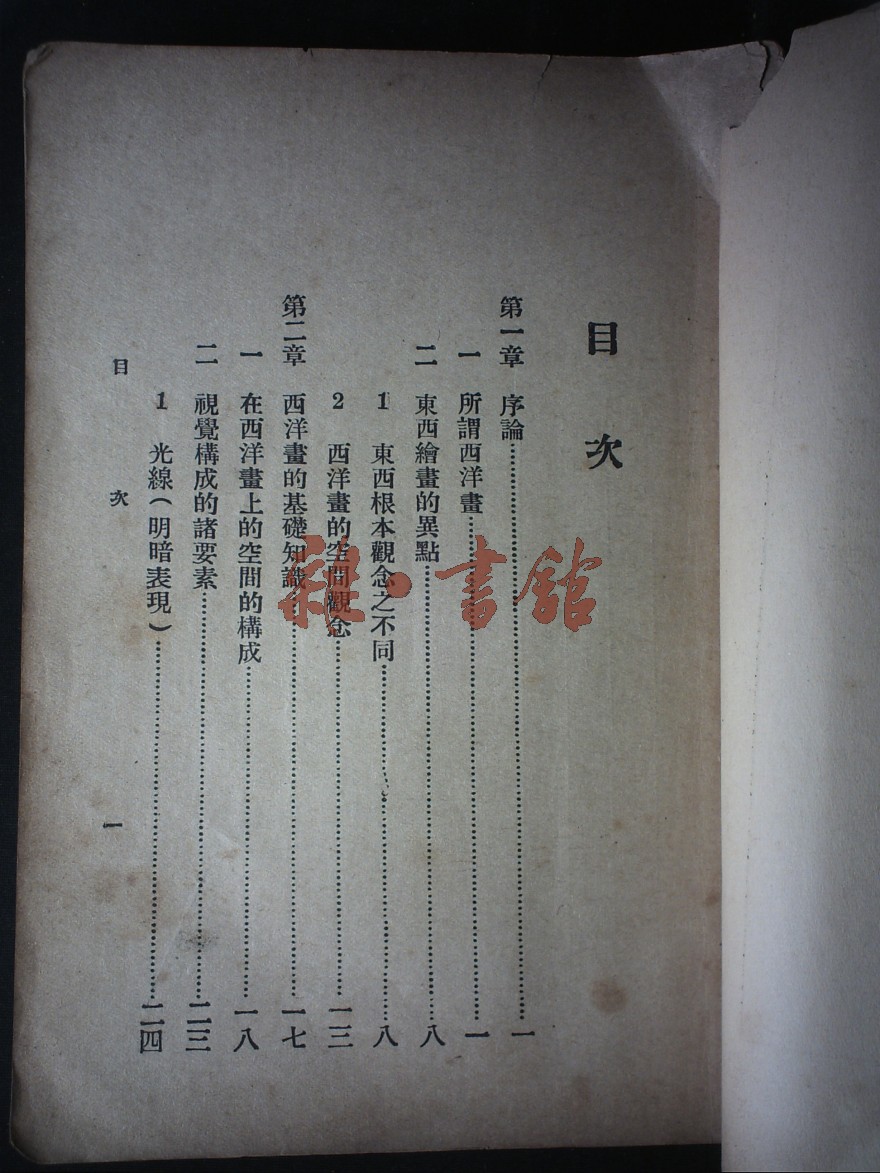 目次
第一章 序論…………一
一 所謂西洋畫…………一
二 東西繪畫的異點…………八
1 東西根本觀念之不同…………八
2 西洋畫的空間觀念…………一三
第二章 西洋畫的基礎知識…………一七
一 在西洋畫上的空間的構成…………一八
二 視覺構成的諸要素…………二三
1 光線(明暗表現)…………二四
目次 一
雜·書館